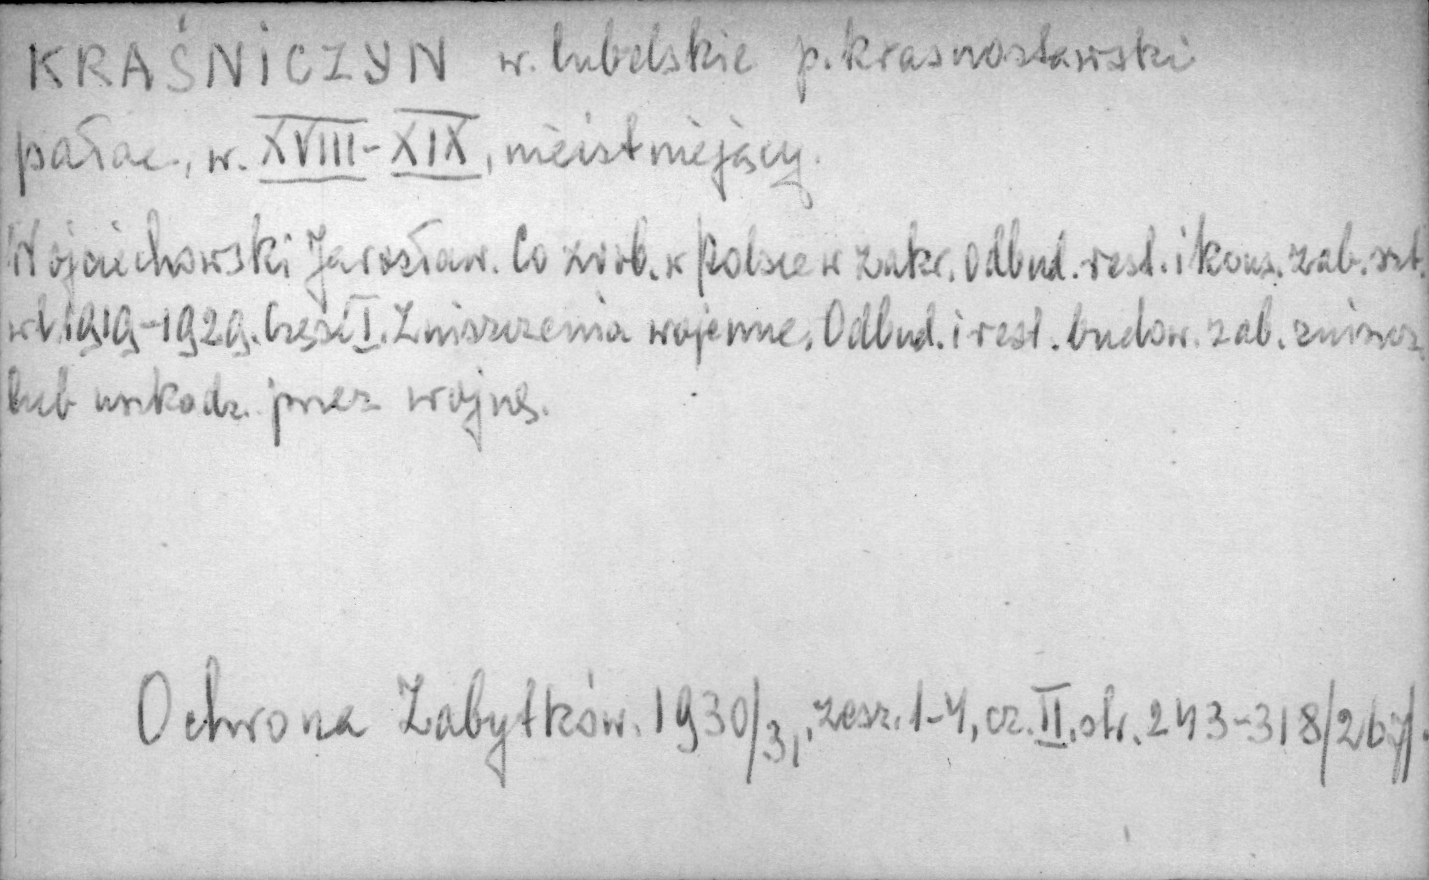 KRAŚNICZYN w. lubelskie p. krasnostawski
pałac, w. XVIII-XIX, nieistniejący.
Wojciechowski Jarosław. Co zrob. w Polsce w zakr. odbud. rest. i kons. zab. szt.
w l. 1919-1929. Część I. Zniszczenia wojenne. Odbud. i rest. budow. zab. zniszcz.
lub uszkodz. przez wojnę.
Ochrona Zabytków. 1930/3, zesz. 1-4, cz. II. str. 243-318/267/.